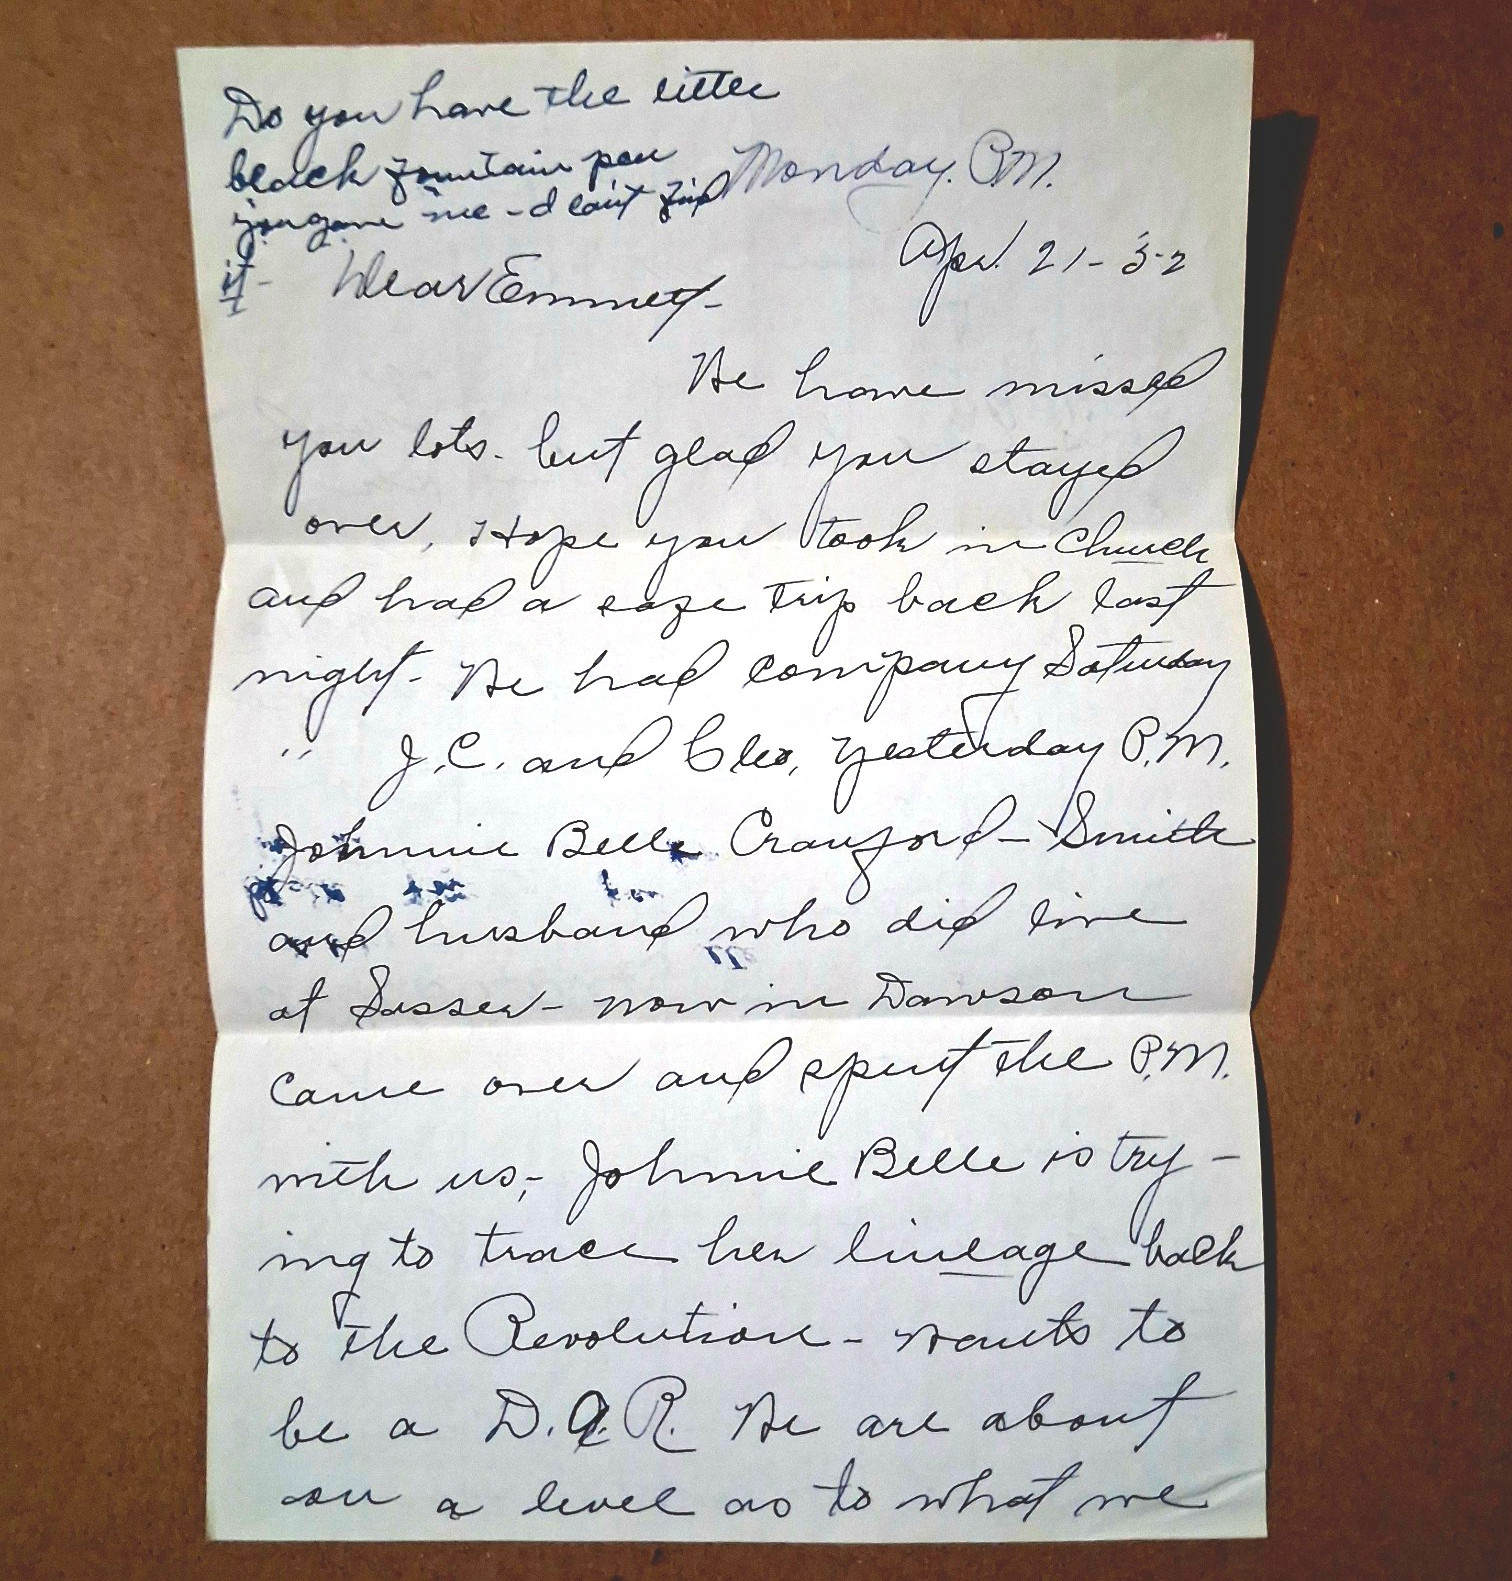 Do you have the little
black fountain pen
you gave me - I can't find
it -
Monday. P.M.
Apr. 21 - 52
Dear Emmett -
We have missed
you lots. but glad you stayed
over, Hope you took in Church
and had a safe trip back last
night - We had company Saturday
" J.C. and Cleo, yesterday P.M.
Johnnie Belle Crawford - Smith
and husband who did live
at Sasser - now in Dawson
came over and spent the P.M.
with us, - Johnnie Belle is try -
ing to trace her lineage back
to the Revolution - wants to
be a D.A.R. We are about
on a level as to what we